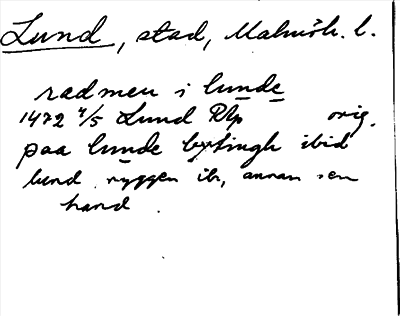 Lund, stad, Malmöh. l.
radmen i lunde
1472 4/5 Lund RAp orig.
paa lunde bytingh ibid
lund ryggen ib, annan sen
hand.